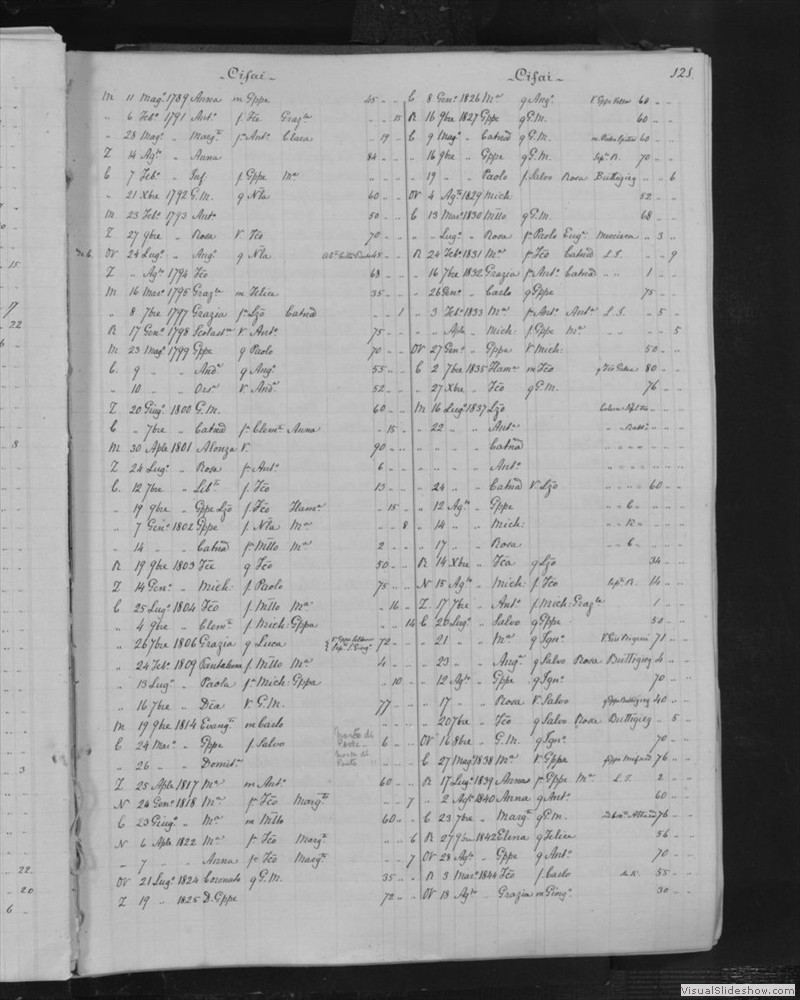 Cifai
Cifai
121.
M 11 Mag.º 1789 Anna m Gppe 45
" 6 Feb.º 1791 Ant.º f. Fco Graz.ª 15
" 28 Mag.º " Marg.ta f. Ant.º Clara 19
Z 14 Ag.to " Anna 84
C 7 Feb.º " Inf. f Gppe M.ª
" 21 Xbre 1792 G.M. g Nla 60
M 23 Feb.º 1793 Ant.º 50
Z 27 9bre " Rosa V. Fco 70
OV 24 Lug.º " Ang.º g Nla 48
Z " Ag.to 1794 Fco 68
M 16 Mar.º 1795 Graz.ª m Felice 35
" 8 7bre 1797 Grazia f. Lzo Catnd 1
R 17 Gen.º 1798 V. Ant.º 75
M 23 Mag.º 1799 Gppe g Paolo 70
C. 9 " " And.º g Ang.º 55
" 10 " " Ors.ª V. And.º 52
Z 20 Giug.º 1800 G.M. 60
C " 7bre " Catnd f. Clem.te Anna 15
M 30 Aple 1801 Alonza V. 90
Z 24 Lug.º " Rosa f. Ant.º 6
C. 12 7bre " Lib.ta f. Fco 13
" 19 9bre " Gppe Lzo f. Fco Flam.ª 15
" 7 Gen.º 1802 Gppe f. Nla M.ª 8
" 14 " " Catnd f. Mtto M.ª 2
R 19 9bre 1803 Fco g Fco 50
Z 14 Gen.º " Mich: f. Paolo 75
C 25 Lug.º 1804 Fco f. Mtto M.ª 16
" 4 9bre " Clem.te f. Mich: Gppa 14
" 26 7bre 1806 Grazia g Luca 72
" 24 Feb.º 1809 f. Mtto M.ª 4
" 13 Lug.º " Paola f. Mich: Gppa 10
" 16 7bre " Dca V. G.M. 77
M 19 9bre 1814 Evang.ta m Carlo
C 24 Mar.º " Gppe f. Salvo 6
" 26 " " Domit.ª
Z 25 Aple 1817 M.ª m Ant.º 60
N 24 Gen.º 1818 M.ª f. Fco Marg.ta 7
C 23 Giug.º " M.ª m Mtto 60
N 6 Aple 1822 M.ª f. Fco Marg.ta 6
" 7 " " Anna f. Fco Marg.ta 7
OV 21 Lug.º 1824 Coronato g G.M. 35
Z 19 " 1825 D. Gppe 72
C 8 Gen.º 1826 M.ª g Ang.º 60
R 16 9bre 1827 Gppe g G.M. 60
C 9 Mag.º " Catnd g G.M. 60
" 16 9bre " Gppe g G.M. Sep.ª R. 70
" 19 " " Paolo f. Salvo Rosa Buttigieg 6
OV 4 Ag.to 1829 Mich: 52
C 13 Mar.º 1830 Mtto g G.M. 68
" " Lug.º " Rosa f. Paolo Eug.ª Muscieca 3
R 24 Feb.º 1831 M.ª f. Fco Catnd L.S. 9
" 16 7bre 1832 Grazia f. Ant.º Catnd " " 1
" 26 Gen.º " Carlo g Gppe 75
" 3 Feb.º 1833 M.ª f. Ant.º Ant.ª L.S. 5
" " Aple " Mich: f. Gppe M.ª " " 5
OV 27 Gen.º " Gppe V. Mich: 50
C 2 7bre 1835 Flam.ª m Fco 80
" 27 Xbre " Fco g G.M. 76
M 16 Lug.º 1837 Lzo
" 22 " " Ant.º
" " " " Catnd
" " " " Ant.º
" 24 " " Catnd V. Lzo 60
" 12 Ag.to " Gppe " " C
" 14 " " Mich: " " R
" 17 " " Rosa " " C
R 14 Xbre " Fca g Lzo 34
N 15 Ag.to " Mich: f. Fco Sep.ª R. 14
Z 17 7bre " Ant.º f. Mich: Graz.ª 1
C 20 Lug.º " Salvo g Gppe 50
" 21 " " M.ª g Ign.º 71
" 23 " " Ang.º g Salvo Rosa Buttigieg 4
" 12 Ag.to " Gppe g Ign.º 70
" 17 " " Rosa V. Salvo g Gppe Buttigieg 40
" 20 7bre " Fco g Salvo Rosa Buttigieg 5
OV 16 8bre " G.M. g Ign.º 70
C 27 Mag.º 1838 M.ª V. Gppe 76
R 17 Lug.º 1839 Anna f. Gppe M.ª L.S. 2
" 2 Ag.to 1840 Anna g Ant.º 60
C 23 7bre " Marg.ta g G.M. 76
R 27 9bre 1842 Elena g Felice 56
OV 28 Ag.to " Gppe g Ant.º 70
R 3 Mar.º 1844 Fco f. Carlo 55
OV 18 Ag.to " Grazia m Giorg.º 30
VisualSlideshow.com